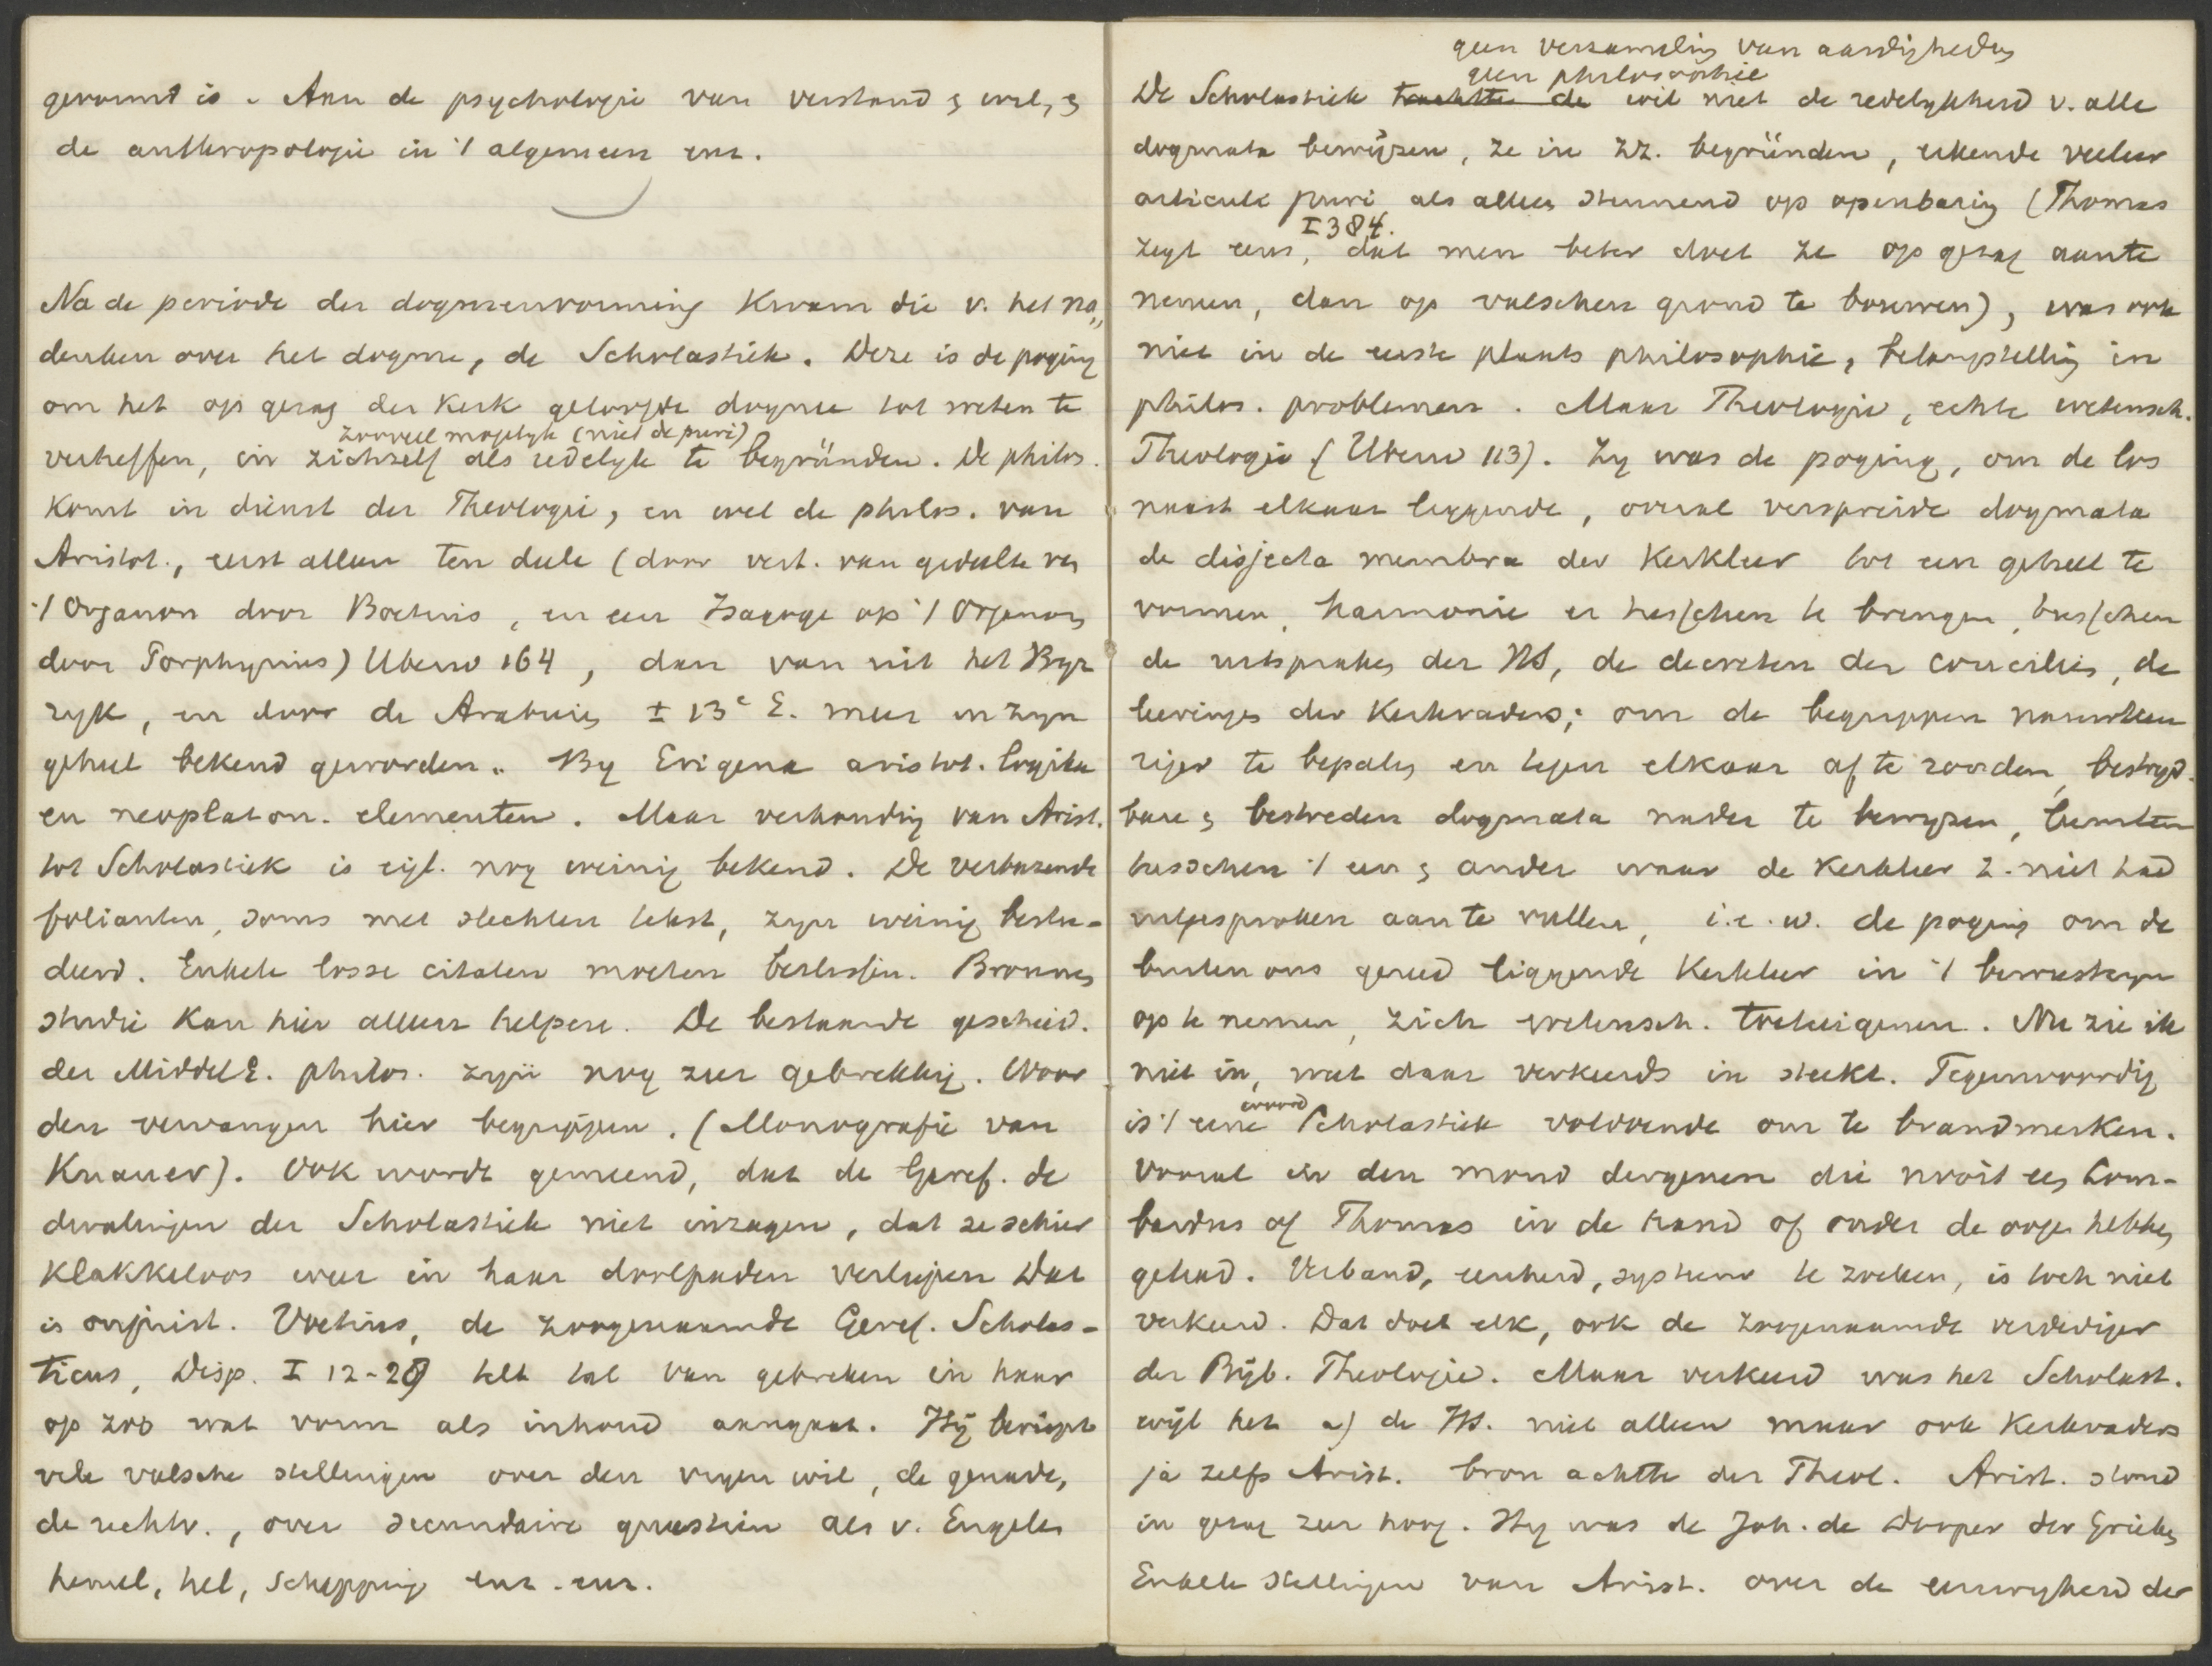 gevormd is. Aan de psychologie van verstand & wil, &
de anthropologie in 't algemeen enz.
Na de periode der dogmenvorming kwam die v. het na„
denken over het dogme, de Scholastiek. Deze is de poging
om het op gezag der Kerk geloofde dogme tot weten te
zooveel mogelyk (niet de puri)
verheffen, in zichzelf als redelyk te begründen. De philos.
komt in dienst der Theologie, en wel de philos. van
Aristot., eerst alleen ten deele (door vert. van gedeelte van
't Organon door Boetius, en een Isagoge op 't Organon
door Porphyrius) Uberw 164, dan van uit het Byz
ryk, en door de Arabieren ± 13e E. meer in zyn
geheel bekend geworden. By Erigena aristot. logika
en neoplaton. elementen. Maar verhouding van Arist.
tot Scholastiek is eigl. nog weinig bekend. De verbazende
folianten, soms met slechten tekst, zyn weinig bestu-
deerd. Enkele losse citaten moeten beslissen. Bronnen
studie kan hier alleen helpen. De bestaande geschied.
der MiddelE. philos. zyn nog zeer gebrekkig. Woor
den vervangen hier begrippen. (Monografie van
Knauer). Ook wordt gemeend, dat de Geref. de
dwalingen der Scholastiek niet inzagen, dat ze schier
klakkeloos weer in haar doolpaden verliepen Dat
is onjuist. Voetius, de zoogenaamde Geref. Scholas-
ticus, Disp. I 12-29 telt tal van gebreken in haar
op zoo wat vorm als inhoud aangaat. Hij berispt
vele valsche stellingen over den vryen wil, de genade,
de rechtv., over secundaire questien als v. Engelen
hemel, hel, schepping enz. enz.
geen verzameling van aardigheden
geen philosophie
De Scholastiek trachtte de wil niet de redelykheid v. alle
dogmata bewijzen, ze in zz. begründen, erkende veeleer
articuli puri als alleen steunend op openbaring (Thomas
I 384.
zegt eens, dat men beter doet ze op gezag aan te
nemen, dan op valschen grond te bouwen), was ook
niet in de eerste plaats philosophie, belangstelling in
philos. problemen. Maar Theologie, echte wetensch.
Theologie (Uberw 113). Zy was de poging, om de los
naast elkaar liggende, overal verspreide dogmata
de disjecta membra der Kerkleer tot een geheel te
vormen, harmonie er tusschen te brengen, tusschen
de uitspraken der HS, de decreten der conciliën, de
leeringen der Kerkvaders; om de begrippen nauwkeu
riger te bepalen en tegen elkaar af te ronden, bestryd-
bare & bestreden dogmata nader te bewyzen,
tusschen 't een & ander waar de Kerkleer z. niet had
uitgesproken aan te vullen, i.e.w. de poging om de
buiten ons gereed liggende Kerkleer in 't bewustzyn
op te nemen, zich wetensch. toe te eigenen. Nu zie ik
niet in, wat daar verkeerds in steekt. Tegenwoordig
woord
is 't eene Scholastiek voldoende om te brandmerken.
Vooral in den mond dergenen die nooit een Lom-
bardus of Thomas in de hand of onder de oogen hebben
gehad. Verband, eenheid, systeem te zoeken, is toch niet
verkeerd. Dat doet elk, ook de zoogenaamde verdediger
der Bijb. Theologie. Maar verkeerd was het Scholast.
wijl het a) de HS. niet alleen maar ook Kerkvaders
ja zelfs Arist. bron achtte der Theol. Arist. stond
in gezag zeer hoog. Hy was de Joh. de Dooper der Grieken
Enkele stellingen van Arist. over de eeuwigheid der